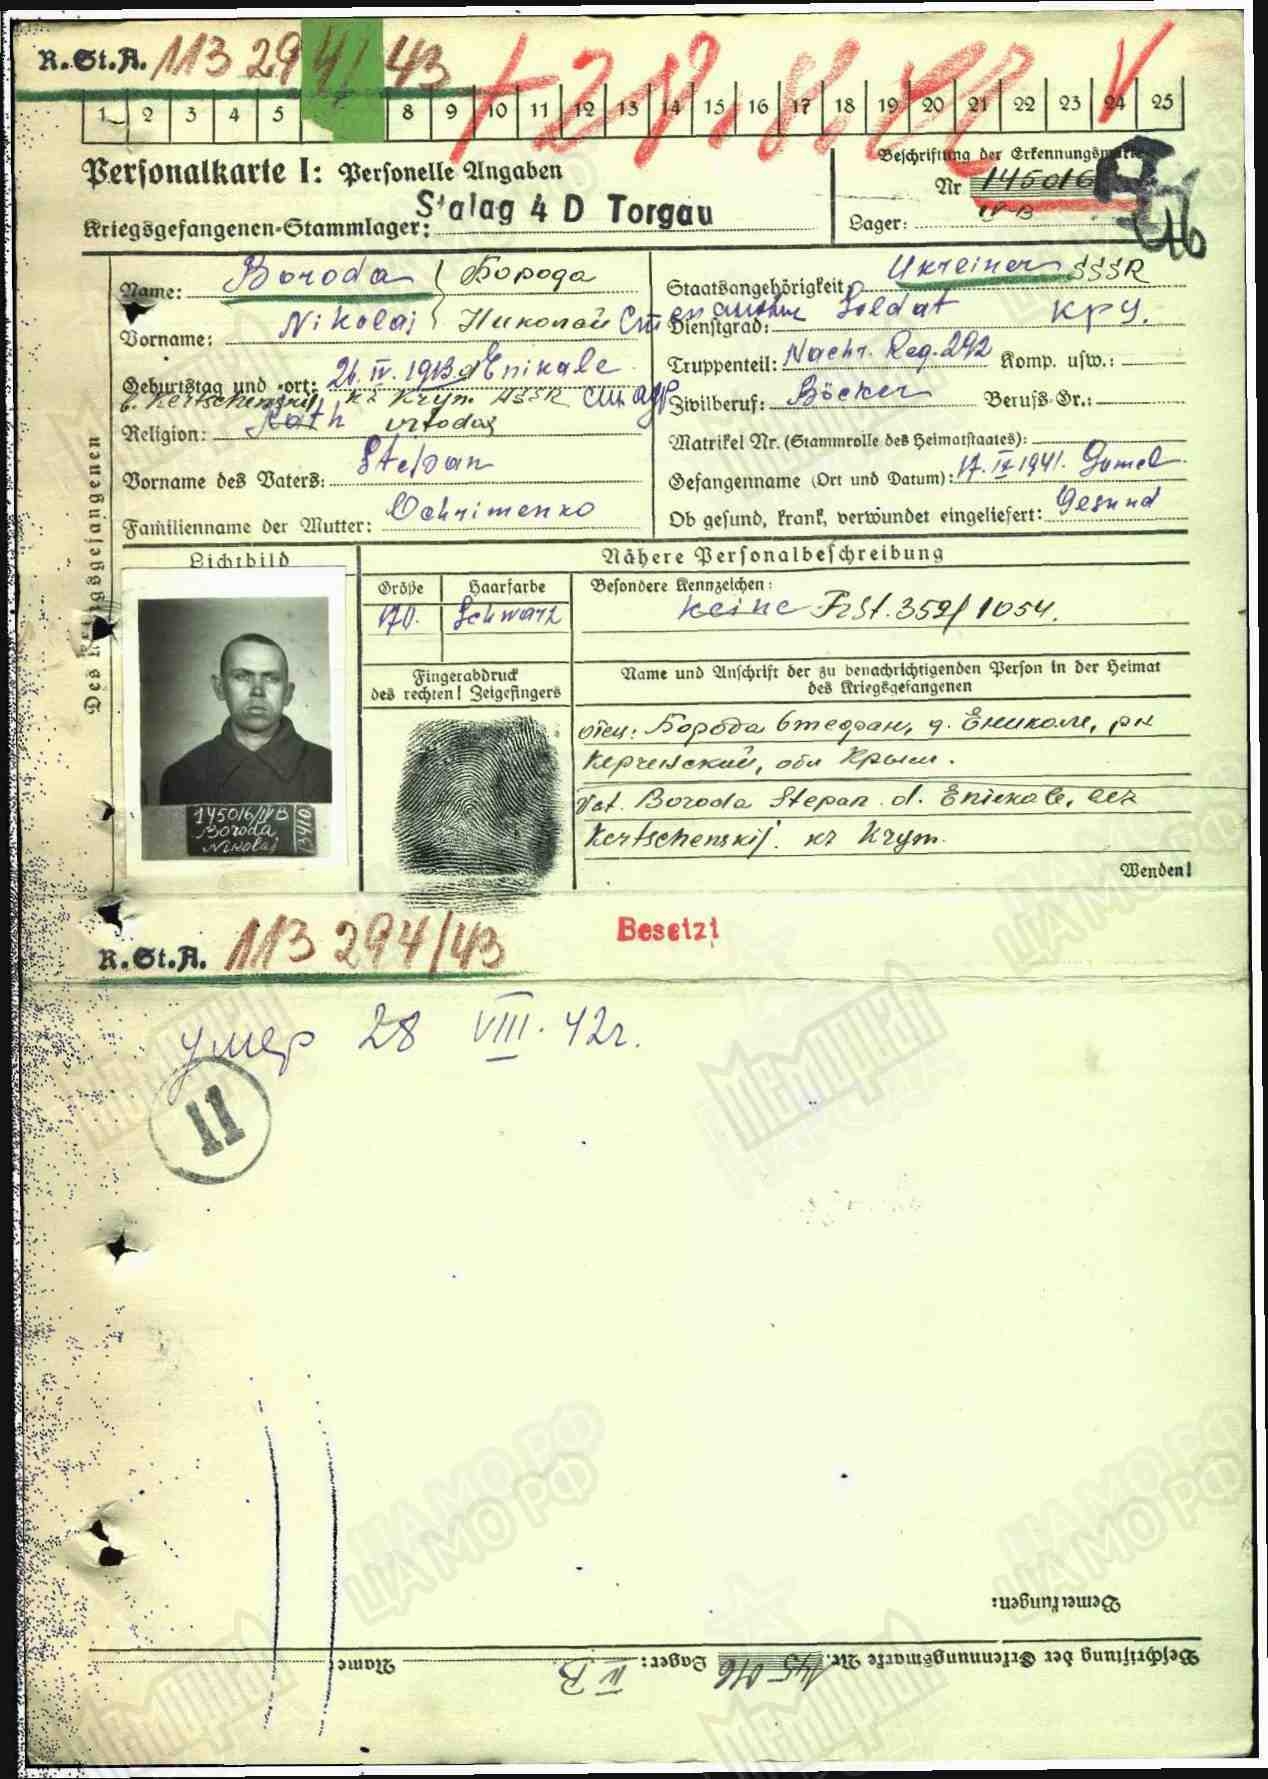 R. St. A. 113 294/43
+ 28.8.42 V
1 2 3 4 5 8 9 10 11 12 13 14 15 16 17 18 19 20 21 22 23 24 25
Personalkarte I: Personelle Angaben
Beschriftung der Erkennungsmarke
Nr 145016
Kriegsgefangenen-Stammlager: Stalag 4 D Torgau
Lager: IV B
Des Kriegsgefangenen
Name: Boroda Борода
Staatsangehörigkeit: Ukreiner SSSR
Vorname: Nikolaj Николай
Dienstgrad: Soldat
Truppenteil: Nachr. Reg. 292 Komp. usw.:
Geburtstag und -ort: 26. IV. 1913 Enikale
Kertschenskij kr Krym ASSR
Zivilberuf: Bäcker Berufs-Gr.:
Religion: Kath ortodox
Matrikel Nr. (Stammrolle des Heimatstaates):
Vorname des Vaters: Stepan
Gefangennahme (Ort und Datum): 17. IX 1941. Gomel
Familienname der Mutter: Ochrimenko
Ob gesund, krank, verwundet eingeliefert: Gesund
Lichtbild
Nähere Personalbeschreibung
Größe Haarfarbe Besondere Kennzeichen:
170. Schwarz keine Frst. 352/1054.
Fingerabdruck
des rechten! Zeigefingers
Name und Anschrift der zu benachrichtigenden Person in der Heimat
des Kriegsgefangenen
отец: Борода Стефан, д. Ениколе, рн
Керченский, обл Крым.
Vat. Boroda Stepan d. Enikale,
Kertschenskij kr Krym.
145016/IVB
Boroda
Nikolaj
Wenden!
R. St. A. 113 294/43
Besetzt
умер 28 VIII. 42г.
11
Bemerkungen:
Beschriftung der Erkennungsmarke Nr. 145016 Lager: IV B Name:
МЕМОРИАЛ
ЦАМО РФ